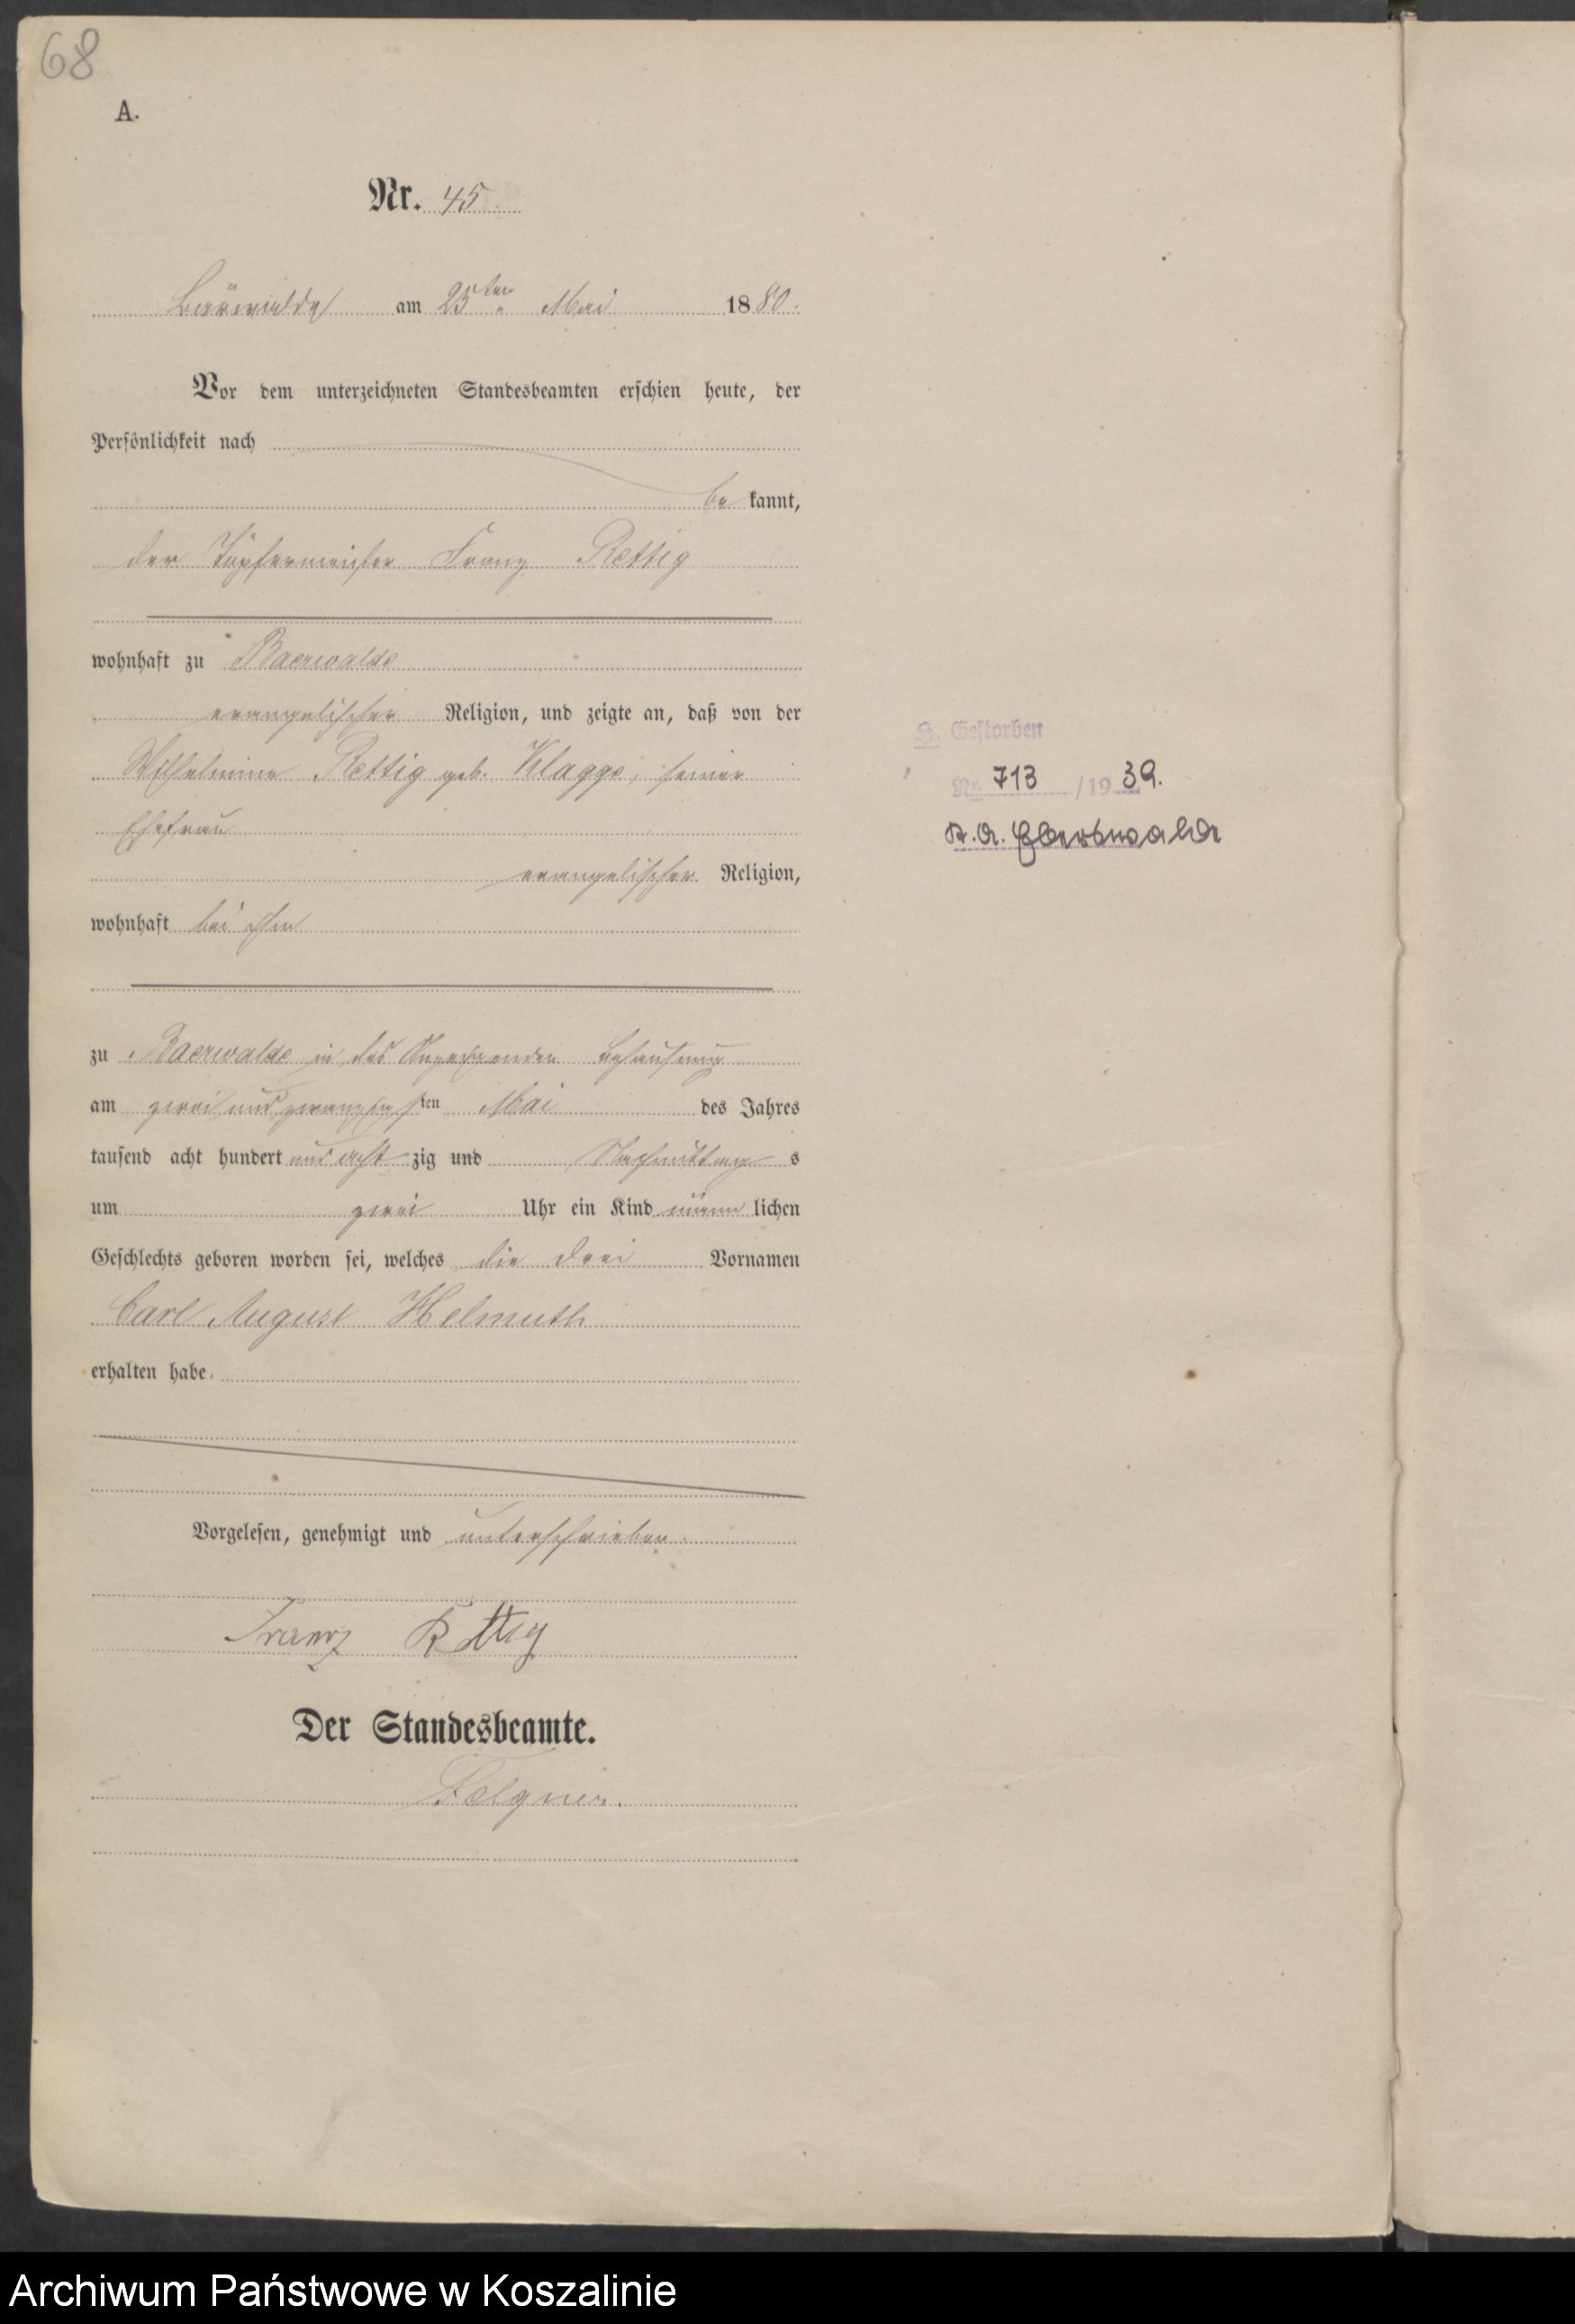 68
A.
Nr. 45
Bärwalde am 25ten Mai 1880.
Vor dem unterzeichneten Standesbeamten erschien heute, der
Persönlichkeit nach
bekannt,
der Töpfermeister Franz Rettig
wohnhaft zu Baerwalde
evangelischer Religion, und zeigte an, daß von der
Wilhelmine Rettig geb. Klagge, seiner
Ehefrau
evangelischer Religion,
wohnhaft bei ihm
zu Baerwalde in des Anzeigenden Behausung
am zwei und zwanzigsten Mai des Jahres
tausend acht hundert und achtzig und Nachmittags
um zwei Uhr ein Kind männlichen
Geschlechts geboren worden sei, welches die drei Vornamen
Carl August Helmuth
erhalten habe.
Vorgelesen, genehmigt und unterschrieben.
Franz Rettig
Der Standesbeamte.
Felgner.
H. Gestorben
Nr. 713 /1939.
St. A. Eberswalde
Archiwum Państwowe w Koszalinie